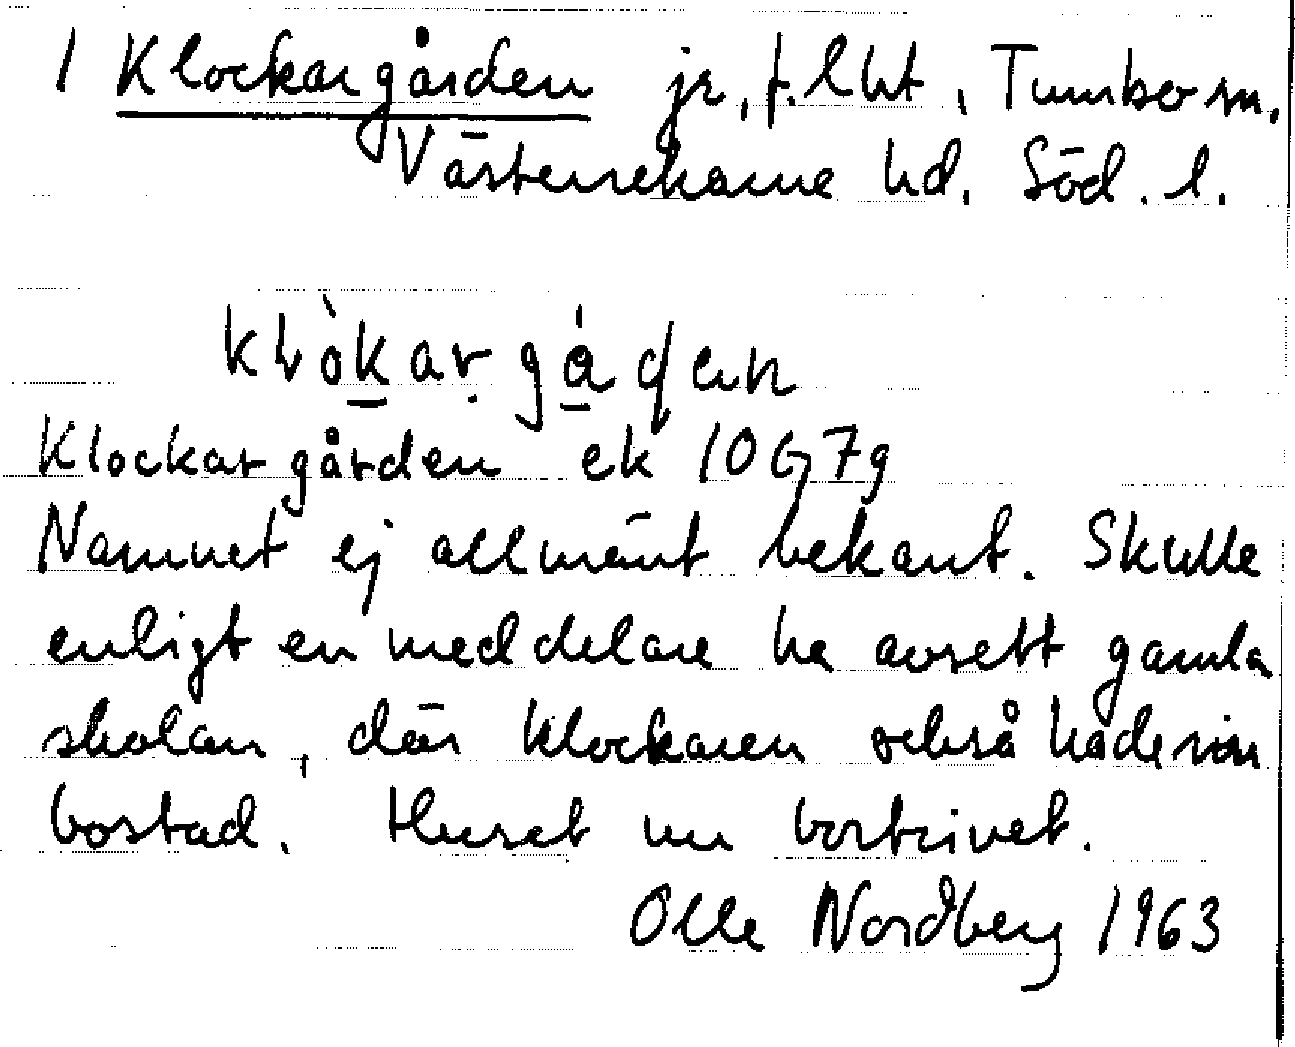 1 Klockargården jr, f.lht, Tumbo sn.
Västerrekarne hd. Söd. l.
Klockargården ek 10G7g
Namnet ej allmänt bekant. Skulle
enligt en meddelare ha avsett gamla
skolan, där klockaren också hade sin
bostad. Huset nu bortrivet.
Olle Nordberg 1963